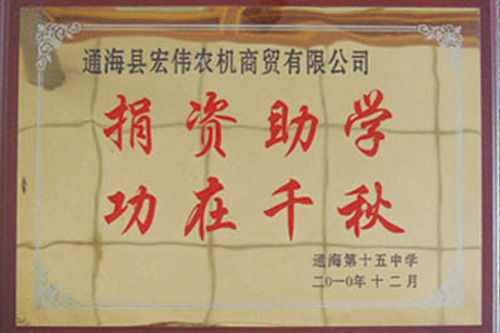 通海县宏伟农机商贸有限公司
捐资助学
功在千秋
通海第十五中学
二0一0年十二月